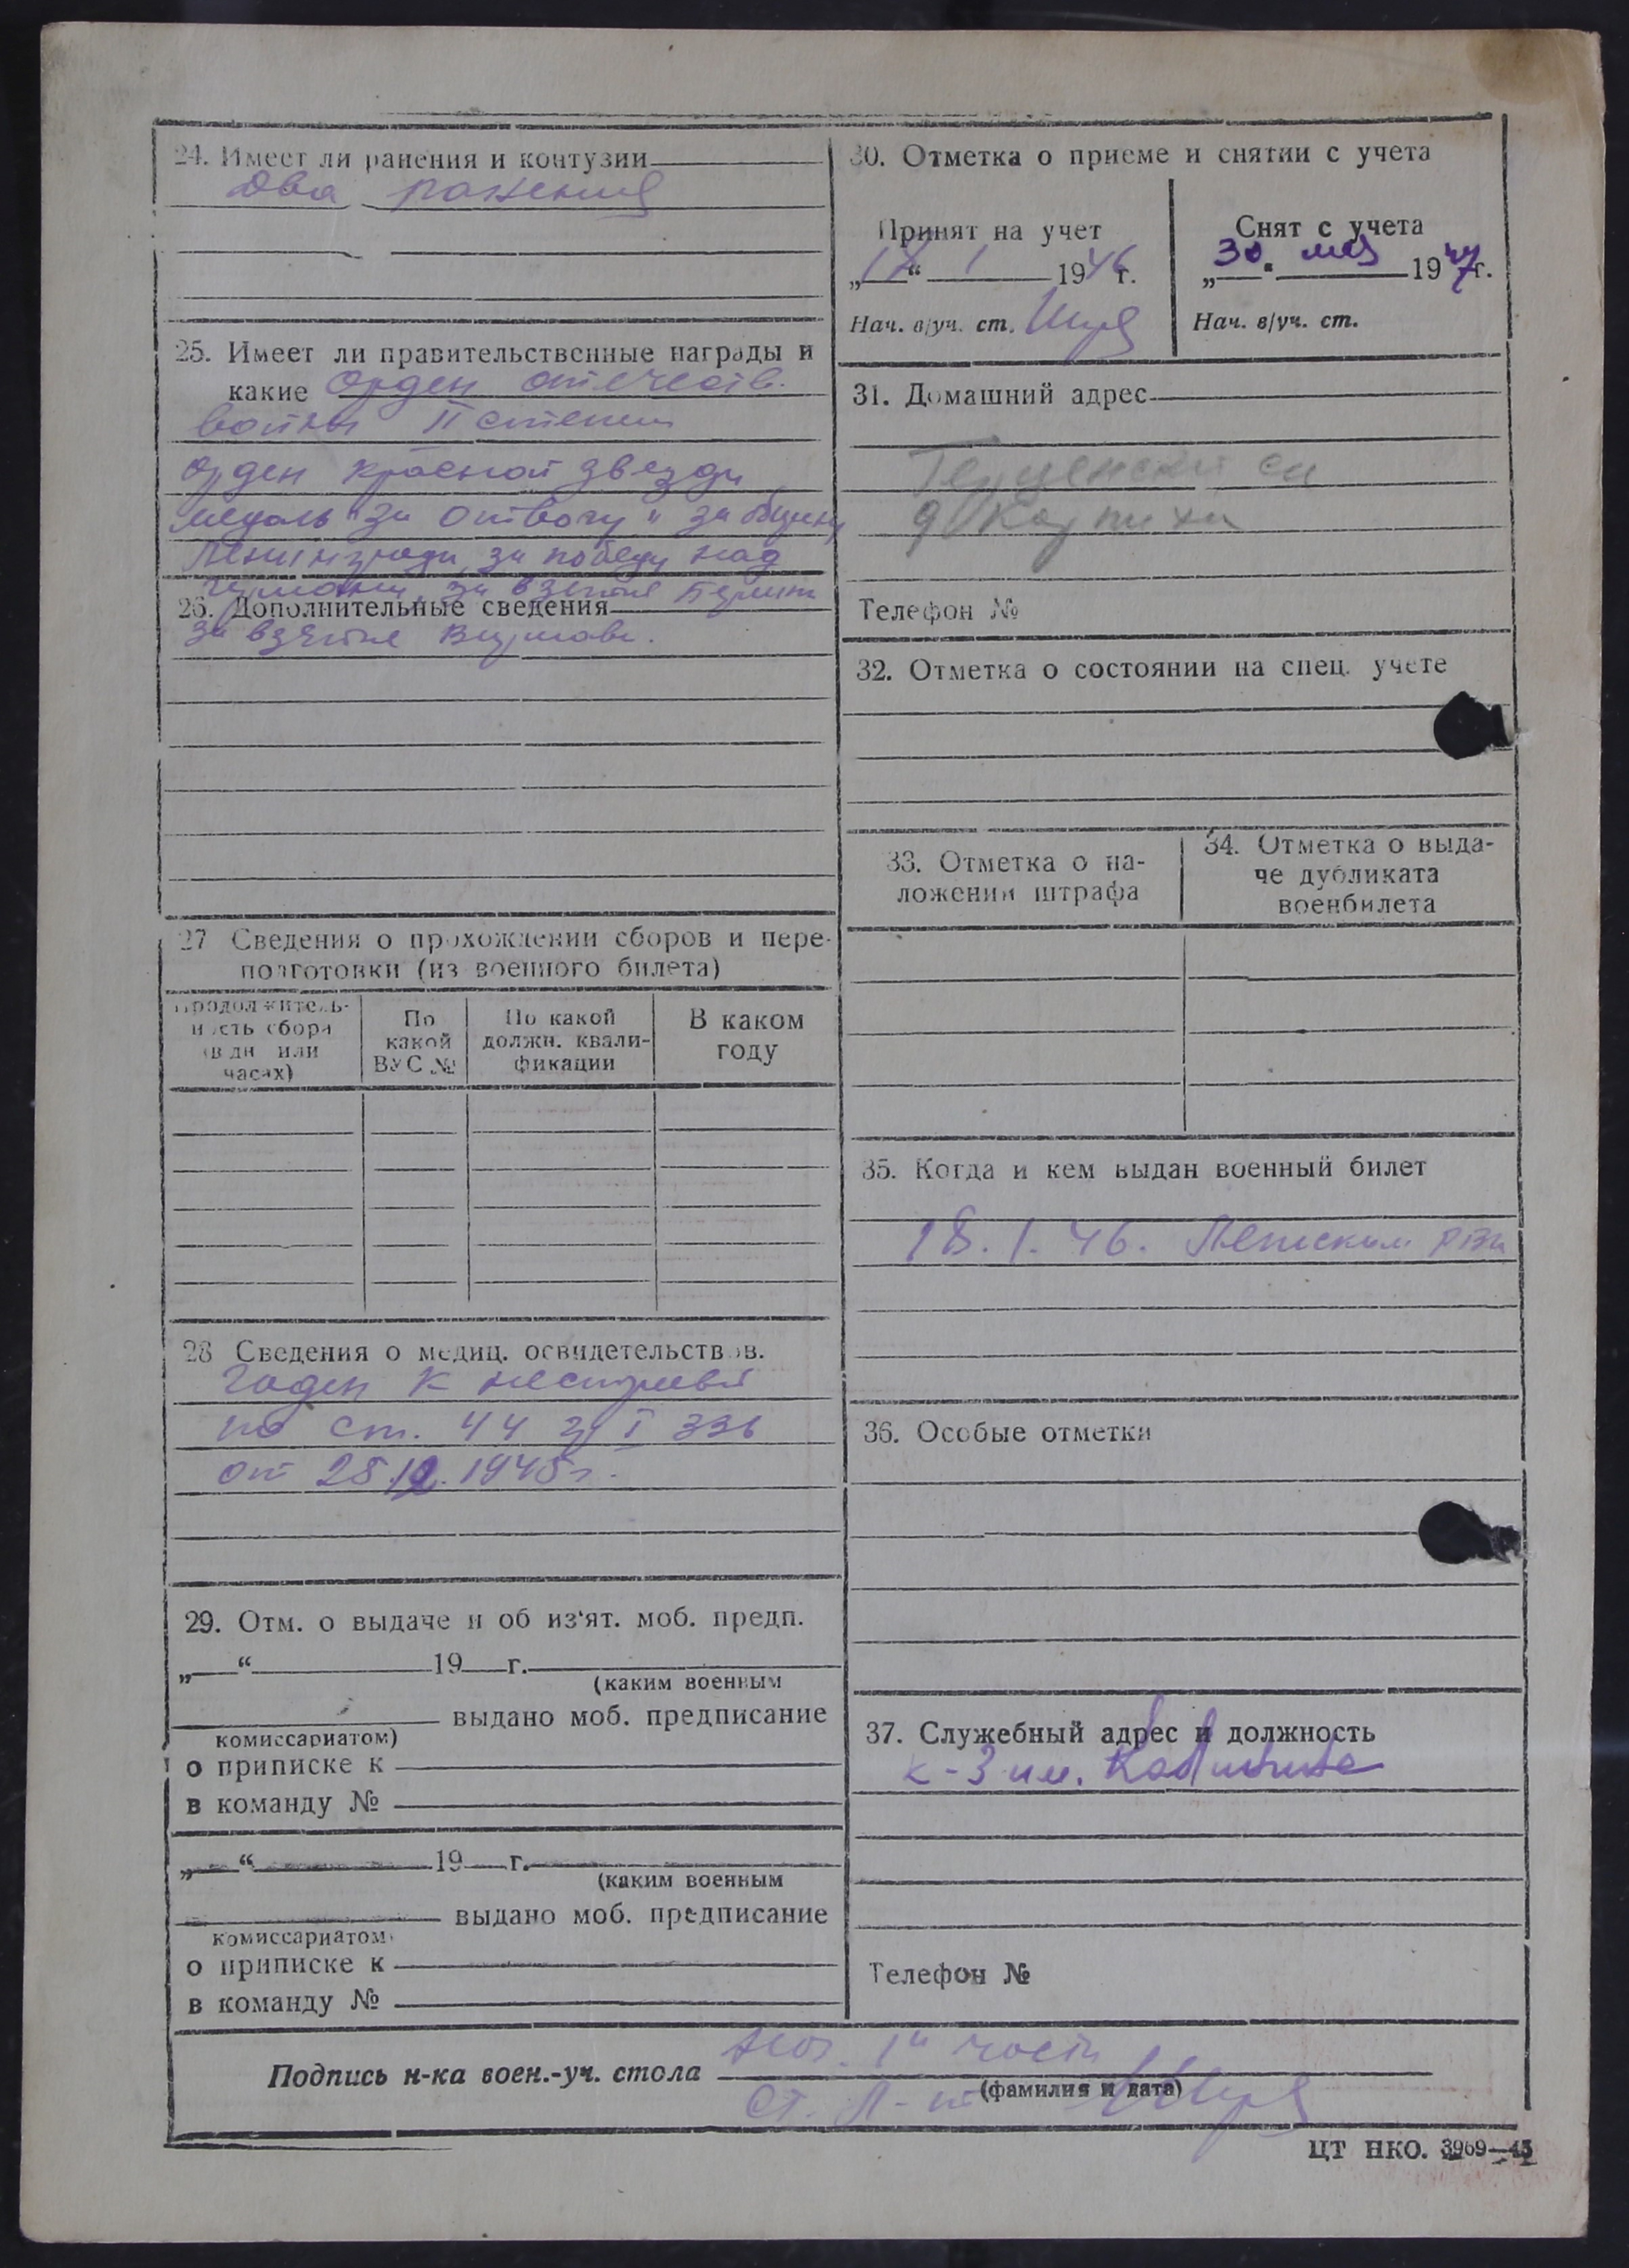 24. Имеет ли ранения и контузии
два ранения
25. Имеет ли правительственные награды и
какие Орден отечеств.
войны II степени
Орден Красной звезды
медаль "За Отвагу" за оборону
Ленинграда, за победу над
Германи, за взятие Берлина
26. Дополнительные сведения
за взятие Варшавы.
27 Сведения о прохождении сборов и пере-
подготовки (из военного билета)
Продолжитель-
ность сбора
(в дн или
часах)
По
какой
ВУС №
По какой
должн. квали-
фикации
В каком
году
28 Сведения о медиц. освидетельствов.
Годен к нестроевой
по ст. 44 гр I 336
от 25.12.1945 г.
29. Отм. о выдаче и об из'ят. моб. предп.
„ “ 19 г.
(каким военным
выдано моб. предписание
комиссариатом)
о приписке к
в команду №
„ “ 19 г.
(каким военным
выдано моб. предписание
комиссариатом)
о приписке к
в команду №
30. Отметка о приеме и снятии с учета
Принят на учет
„18“ 1 1946 г.
Нач. в/уч. ст.
Снят с учета
„30. мая 1947 г.
Нач. в/уч. ст.
31. Домашний адрес
д Карпиха
Телефон №
32. Отметка о состоянии на спец. учете
33. Отметка о на-
ложении штрафа
34. Отметка о выда-
че дубликата
военбилета
35. Когда и кем выдан военный билет
18.1.46. Лежским рвк
36. Особые отметки
37. Служебный адрес и должность
к-з им. Калинина
Телефон №
Нач. 1й части
Подпись н-ка воен.-уч. стола
(фамилия и дата)
ст. л-нт
ЦТ НКО. 3969—45